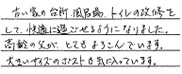 古い家の台所、風呂場、トイレの改修を
して、快適に過ごせるようになりました。
高齢の父が、とてもよろこんでいます。
大きいサイズのポストも気に入っています。